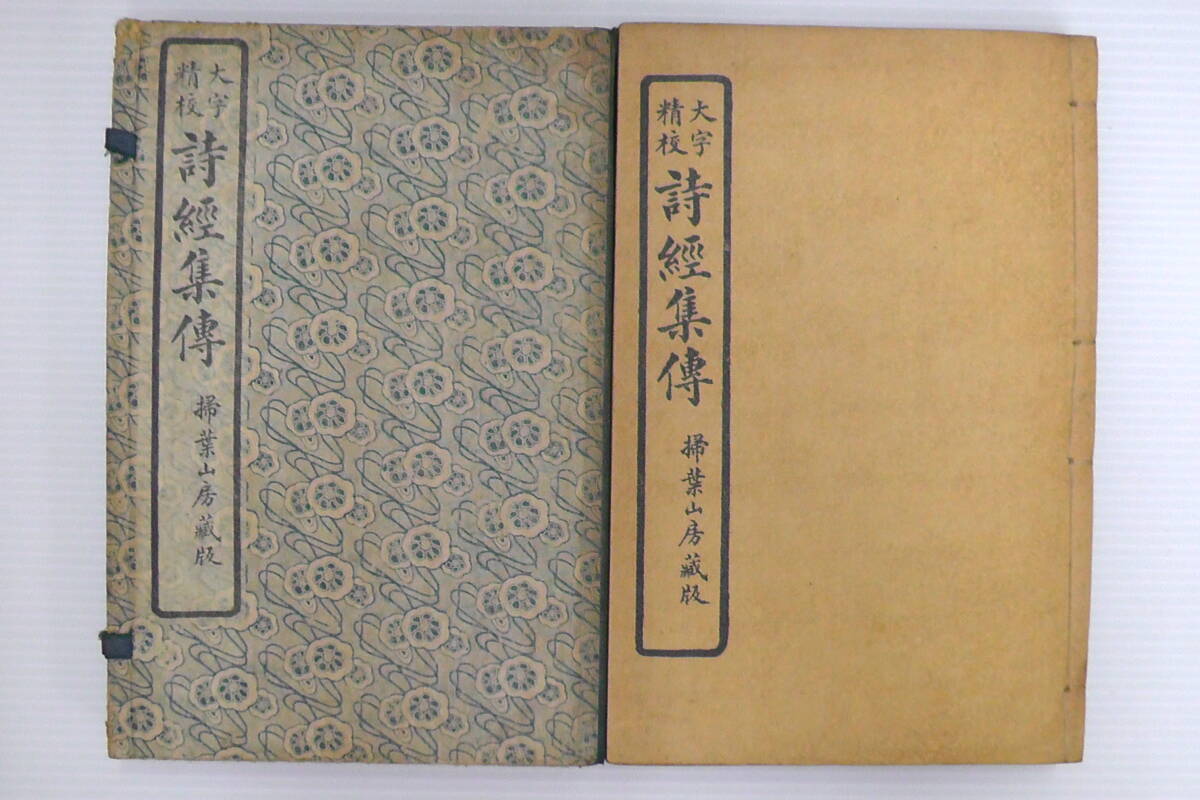 大字
精校
詩經集傳
掃葉山房藏版
大字
精校
詩經集傳
掃葉山房藏版